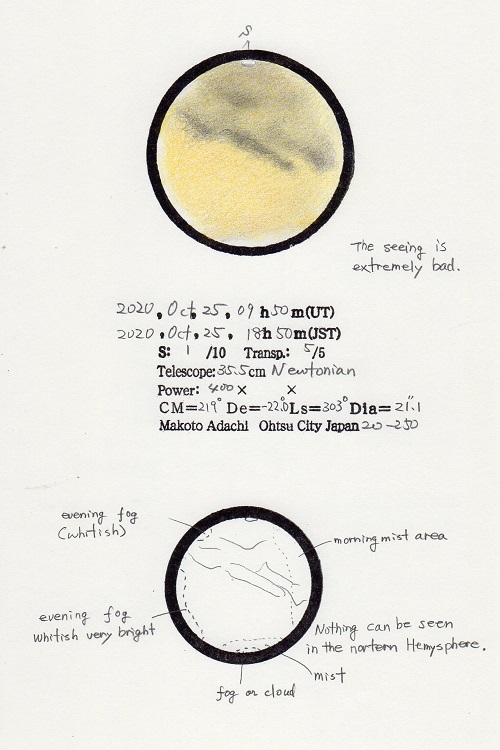 S
The seeing is
extremely bad.
2020, Oct, 25, 09 h 50 m (UT)
2020, Oct, 25, 18h 50 m (JST)
S: 1 /10 Transp.: 5/5
Telescope: 35.5cm Newtonian
Power: 400 × ×
CM=219° De=-22.0 Ls=303° Dia=21".1
Makoto Adachi Ohtsu City Japan 20-250
evening fog
(whitish)
morning mist area
evening fog
whitish very bright
Nothing can be seen
in the nortern Hemysphere.
mist
fog or cloud